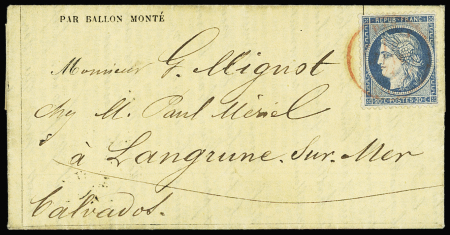 PAR BALLON MONTÉ
REPUB. FRANC.
Monsieur G. Mignot
chez M. Paul
20 C. POSTES 20 C.
à Langrune-sur-Mer
Calvados.